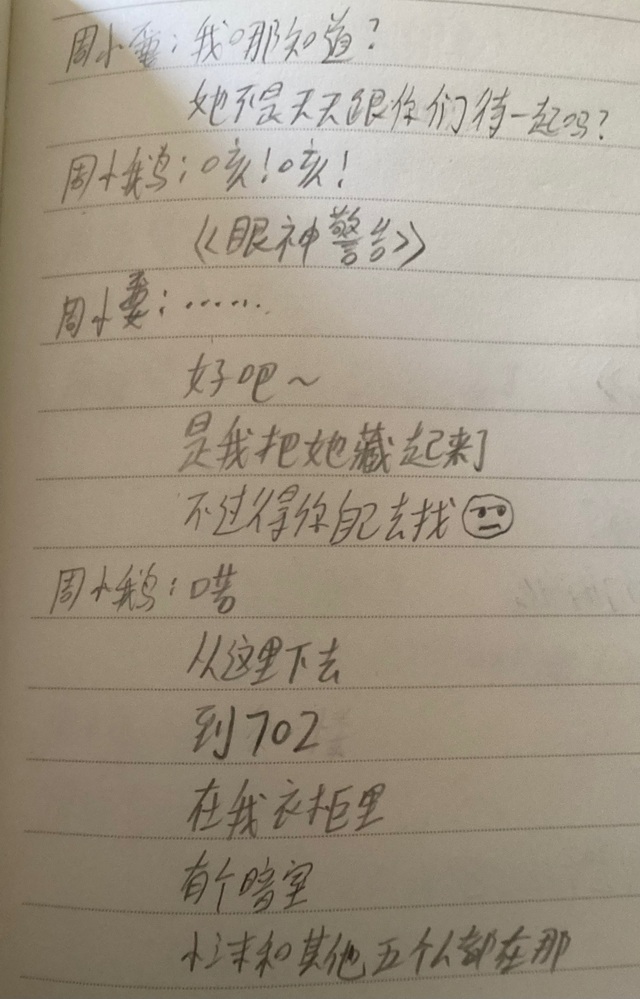 周小：我哪知道？
她不是天天跟你们待一起吗？
周小鹅：咳！咳！
《眼神警告》
周小：……
好吧～
是我把她藏起来了
不过得你自己去找
周小鹅：喏
从这里下去
到702
在我衣柜里
有个暗室
小沫和其他五个人都在那